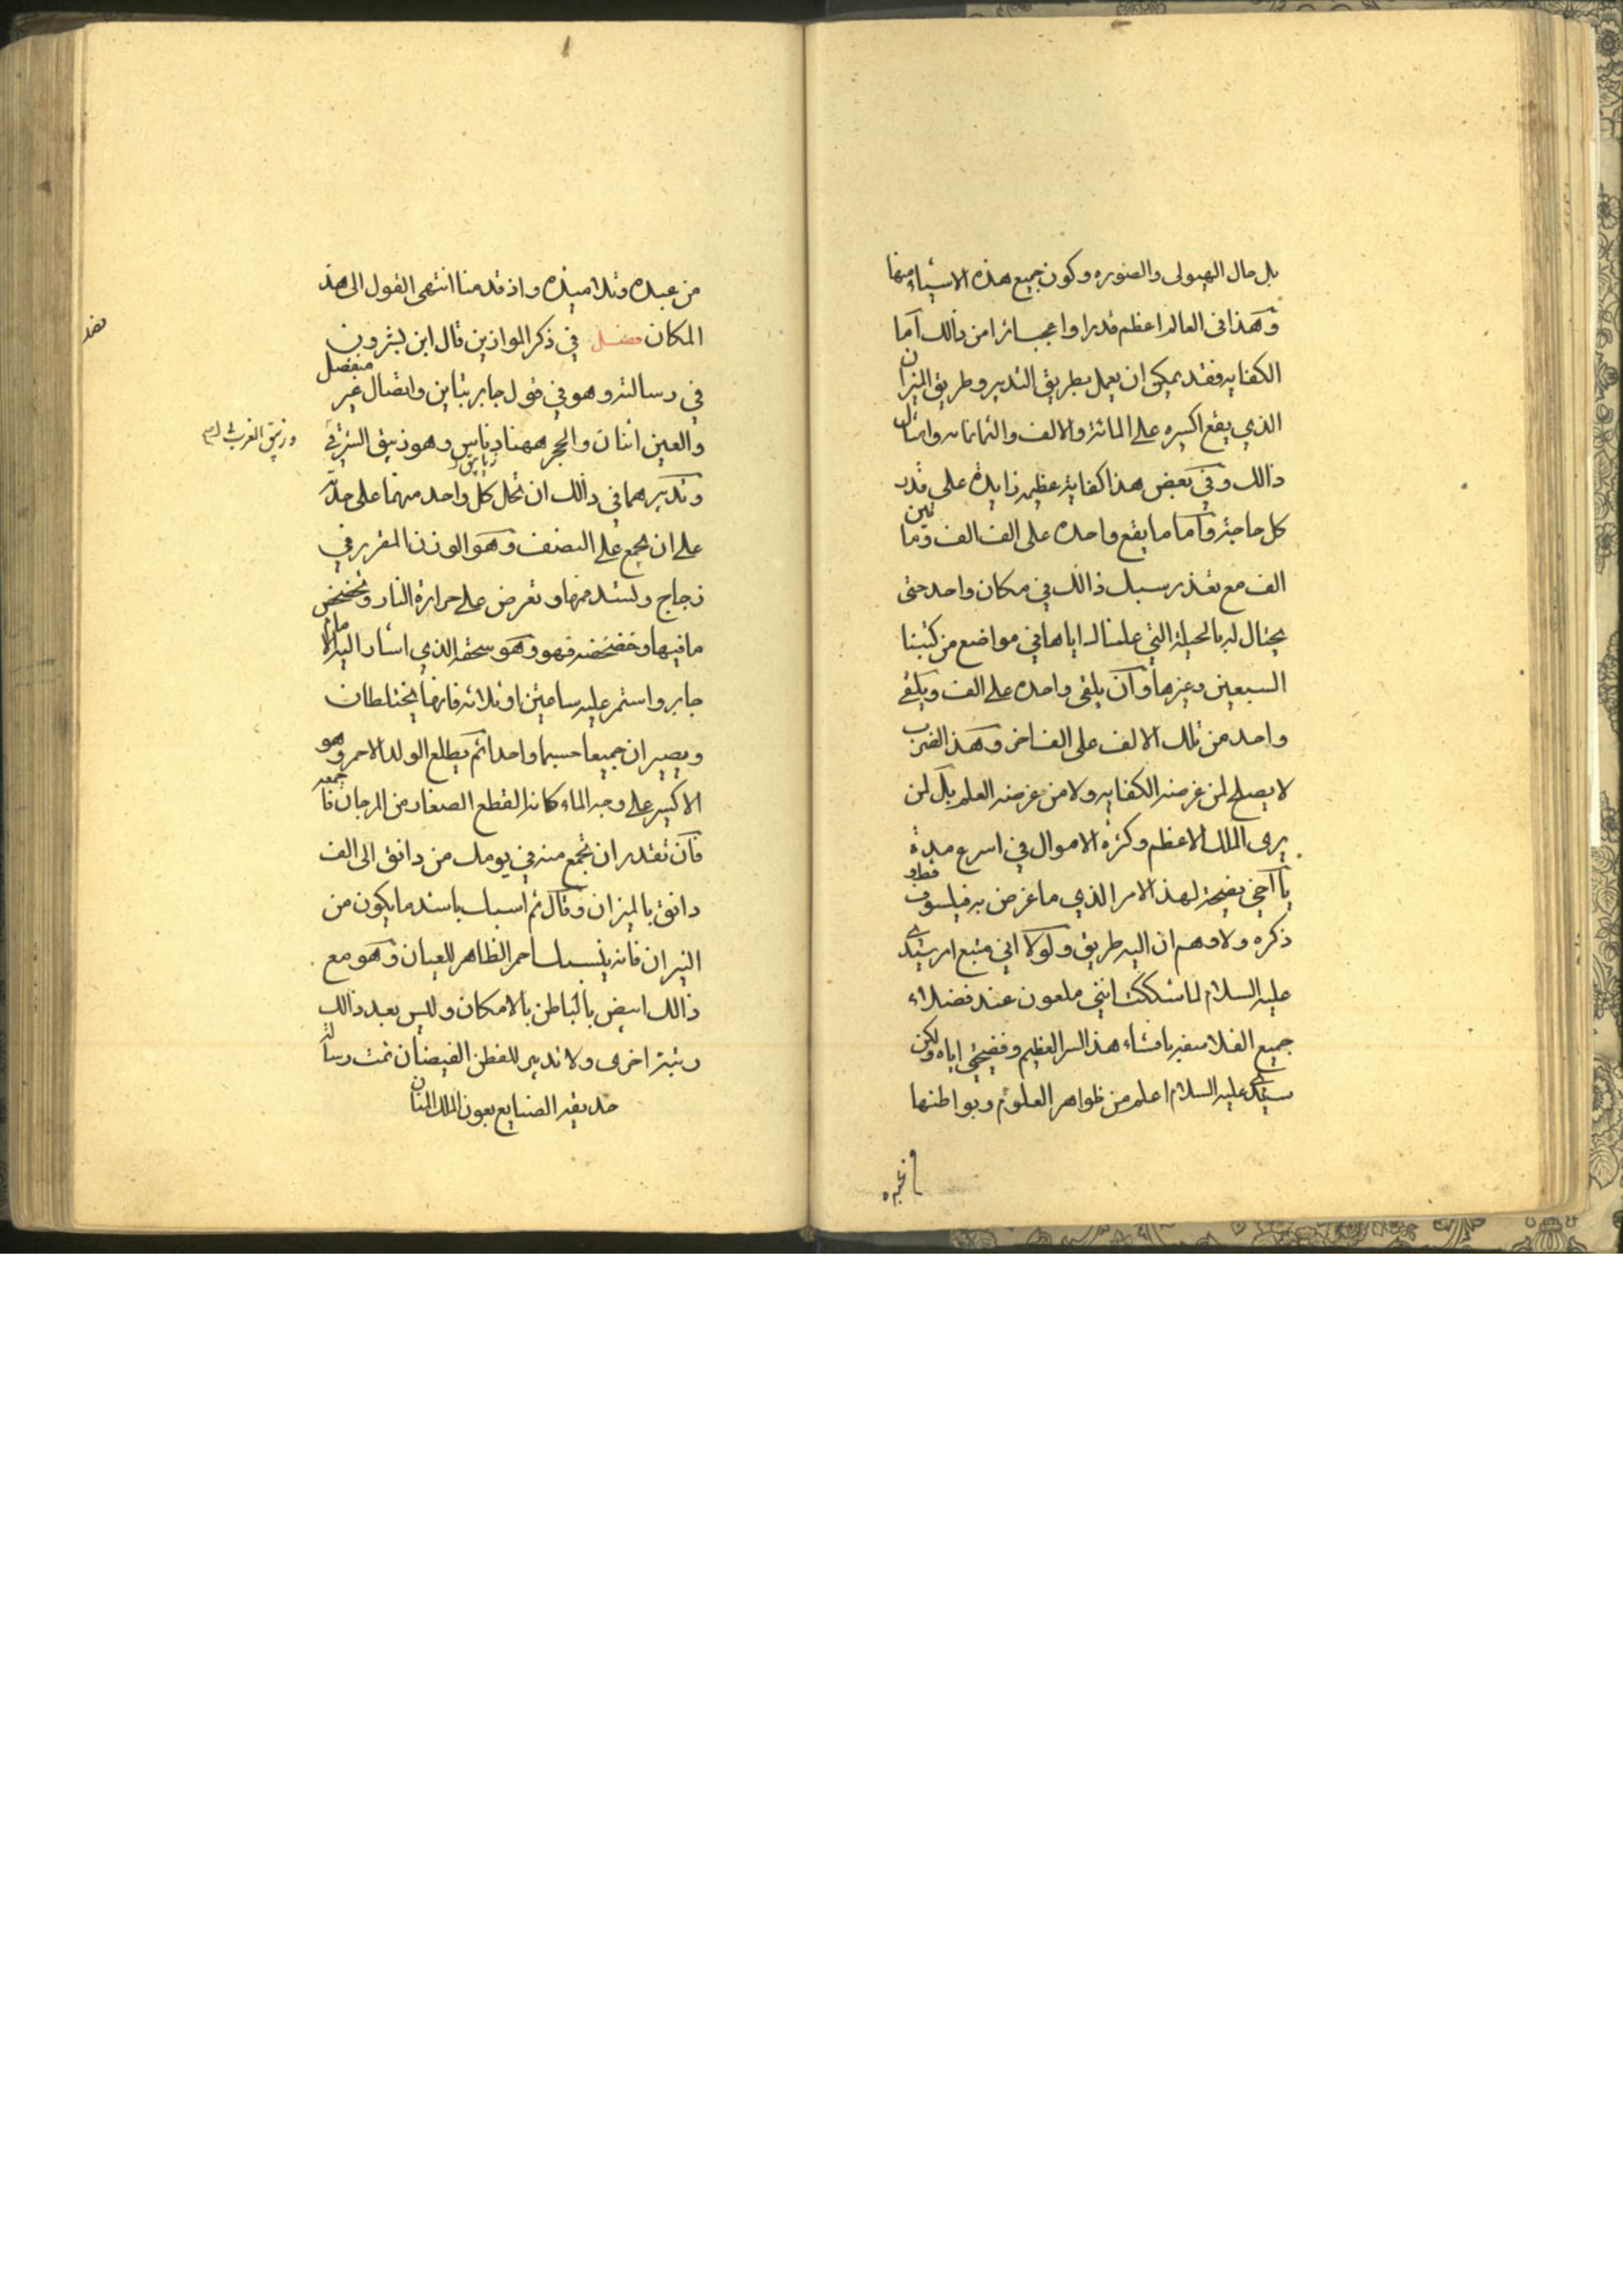 بل حال الهيولى والصوره وكون جميع هذه الاشياء منها
وهذا في العالم اعظم قدرا واعجازا من ذالك اما
الكفايه فقد يمكن ان يعمل بطريق التدبير وطريق الميزان
الذي يقع اكسيره على المائة والالف والثمانمايه وامثال
ذالك وفي بعض هذا كفاية عظيمه زايدة على قدر
كل حاجة واما ما يقع واحده على الف الف ومائتين
الف مع تعذر سبك ذالك في مكان واحد حتى
يحتال له بالحيلة التي علمناك اياها في مواضع من كتبنا
السبعين وغيرها وان يلقى واحده على الف ويلقى
واحد من تلك الالف على الف اخر وهذا الضرب
لا يصلح لمن غرضه الكفايه ولا من غرضه العلم بل لمن
يرى الملك الاعظم وكثرة الاموال في اسرع مدة
يا اخي نصيحة لهذ الامر الذي ما عرض به فيلسوف قط ولا
ذكره ولا وهم ان اليه طريق ولولا اني متبع امر سيدي
عليه السلام لما شككت انني ملعون عند فضلاء
جميع الفلاسفه بافشاء هذ السر العظيم وفضيحتي اياه ولكن
سيدي عليه السلام اعلم من ظواهر العلوم وبواطنها
غيره
من عبيده وتلاميذه واذ قدمنا انتهى القول الى هذ
المكان فصل في ذكر الموازين قال ابن بشرون
في رسالته وهو في قول جابر بتباين واتصال غير منفصل
والعين اثنان والحجر ههنا وهو زيبق الشرقي
وزيبق الغرب
وتدبيرهما في ذالك ان تحل كل واحد منهما على حدة
على ان يجمع على النصف وهو الوزن المقرر في
زجاج وتسد فمها وتعرض على حرارة النار وتخضخض
ما فيها وخضخضه فهو وهو سحقه الذي اشار اليه الامام
جابر واستمر عليه ساعتين او ثلاثه فانهما يختلطان
ويصيران جميعا جسما واحدا ثم يطلع الولد الاحمر وهو
الاكسير على وجه الماء كانه القطع الصغار من المرجان فاجمعه
فان تقدر ان تجمع منه في يومك من دانق الى الف
دانق بالميزان وقال ثم اسبك باشد ما يكون من
النيران فانه ينسبك احمر الظاهر للعيان وهو مع
ذالك ابيض بالباطن بالامكان وليس بعد ذالك
رتبة اخرى ولا تدبير للفطن الفيضان تمت رسالة
حديقة الصنايع بعون الملك المنان